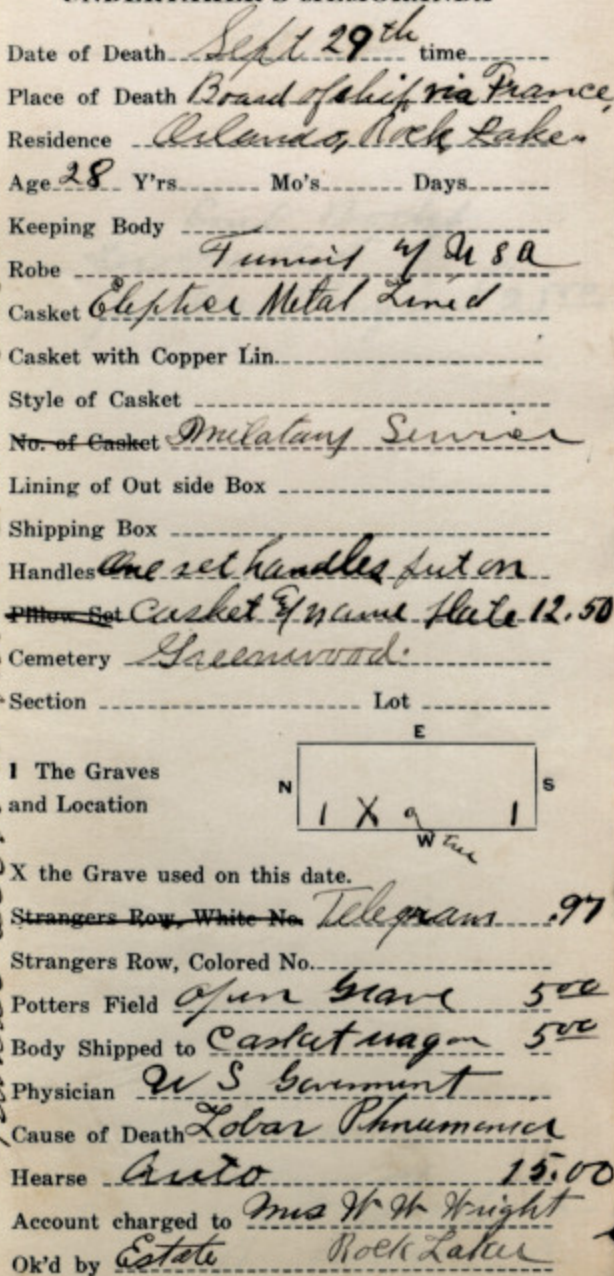 Date of Death Sept 29th time
Place of Death Board of ship via France,
Residence Orlando, Rock Lake
Age 28 Y'rs Mo's Days
Keeping Body
Robe Funish by U S A
Casket Eleptice Metal Lined
Casket with Copper Lin.
Style of Casket
No. of Casket Milatary Servier
Lining of Out side Box
Shipping Box
Handles One set handles put on
Pillow Set Casket & name Plate 12.50
Cemetery Greenwood.
Section Lot
E
1 The Graves
N S
and Location
1 X 1
W tree
X the Grave used on this date.
Strangers Row, White No. Telegrams .97
Strangers Row, Colored No.
Potters Field Open Grave 5 00
Body Shipped to Casket wagon 5 00
Physician U S Government
Cause of Death Lobar Phnumonia
Hearse Auto 15.00
Account charged to Mrs W W Wright
Ok'd by Estate Rock Laker